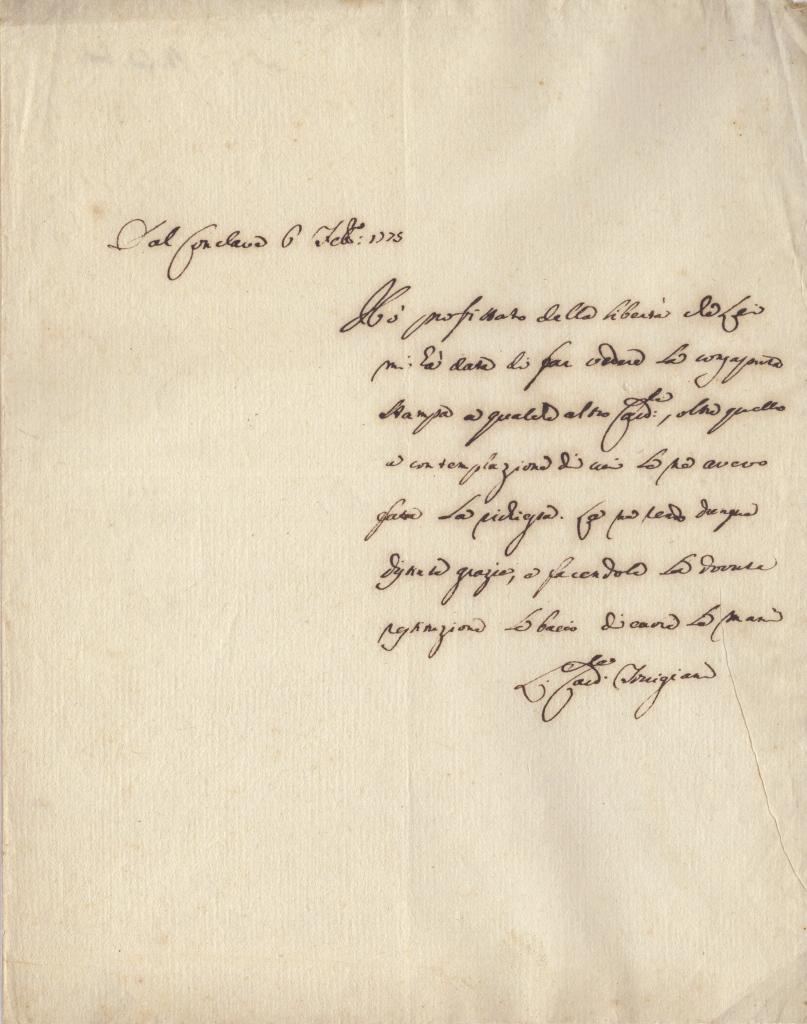 Dal Conclave 6 Feb:º 1775
Hò profittato della libertà che Lei
mi hà data di far vedere la consaputa
stampa a qualche altro Card:le, oltre quello
a contemplazione di cui le ne avevo
fatta la richiesta. Le ne rendo dunque
distinte grazie, e facendole la dovuta
restituzione le bacio di cuore le mani
Il Card.le Torrigiani